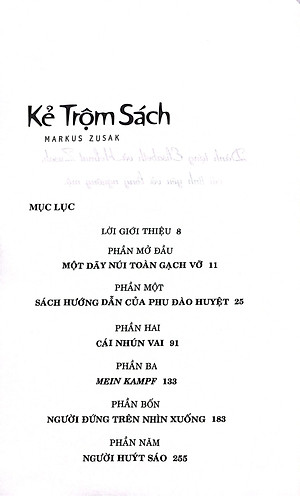 Kẻ Trộm Sách
MARKUS ZUSAK
MỤC LỤC
LỜI GIỚI THIỆU 8
PHẦN MỞ ĐẦU
MỘT DÃY NÚI TOÀN GẠCH VỠ 11
PHẦN MỘT
SÁCH HƯỚNG DẪN CỦA PHU ĐÀO HUYỆT 25
PHẦN HAI
CÁI NHÚN VAI 91
PHẦN BA
MEIN KAMPF 133
PHẦN BỐN
NGƯỜI ĐỨNG TRÊN NHÌN XUỐNG 183
PHẦN NĂM
NGƯỜI HUÝT SÁO 255